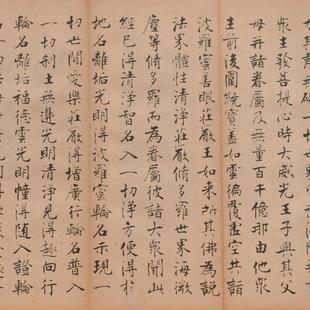 眾生發菩提心時大威光王子與其父
母并諸眷屬及無量百千億那由他眾
生前後圍繞寶蓋如雲徧覆虛空共詣
波羅蜜善眼莊嚴王如來所其佛為說
法界體性清淨莊嚴修多羅世界海微
塵等修多羅而為眷屬彼諸大眾聞此
經已得清淨智名入一切淨方便得於
地名離垢光明得波羅蜜輪名示現一
切世間愛樂莊嚴得增廣行輪名普入
一切剎土無邊光明清淨見得趣向行
輪名離垢福德雲光明幢得隨入證輪